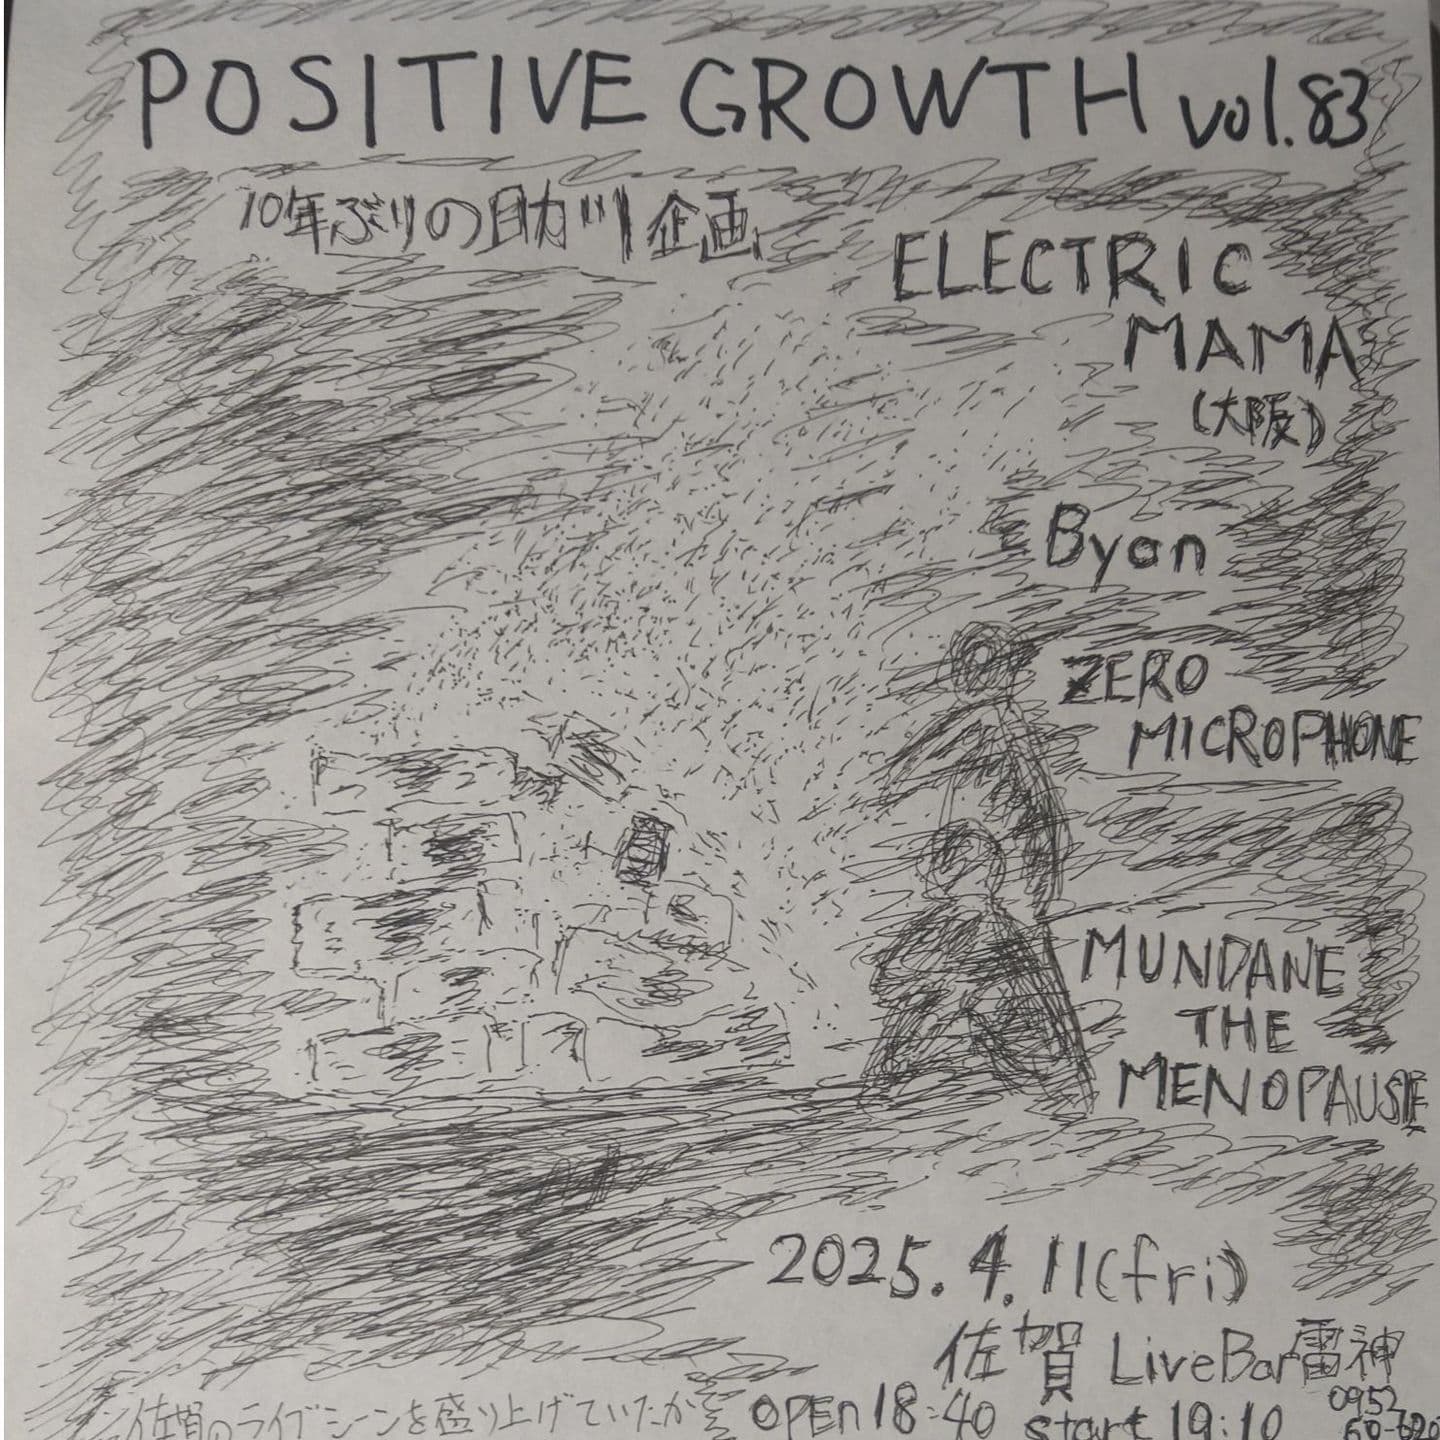 POSITIVE GROWTH vol.83
10年ぶりの助川企画
ELECTRIC
MAMA
(大阪)
Byan
ZERO
MICROPHONE
MUNDANE
THE
MENOPAUSE
2025.4.11(fri)
佐賀 LiveBar雷神
OPEN 18:40 start 19:10
0952
佐賀のライブシーンを盛り上げていたか